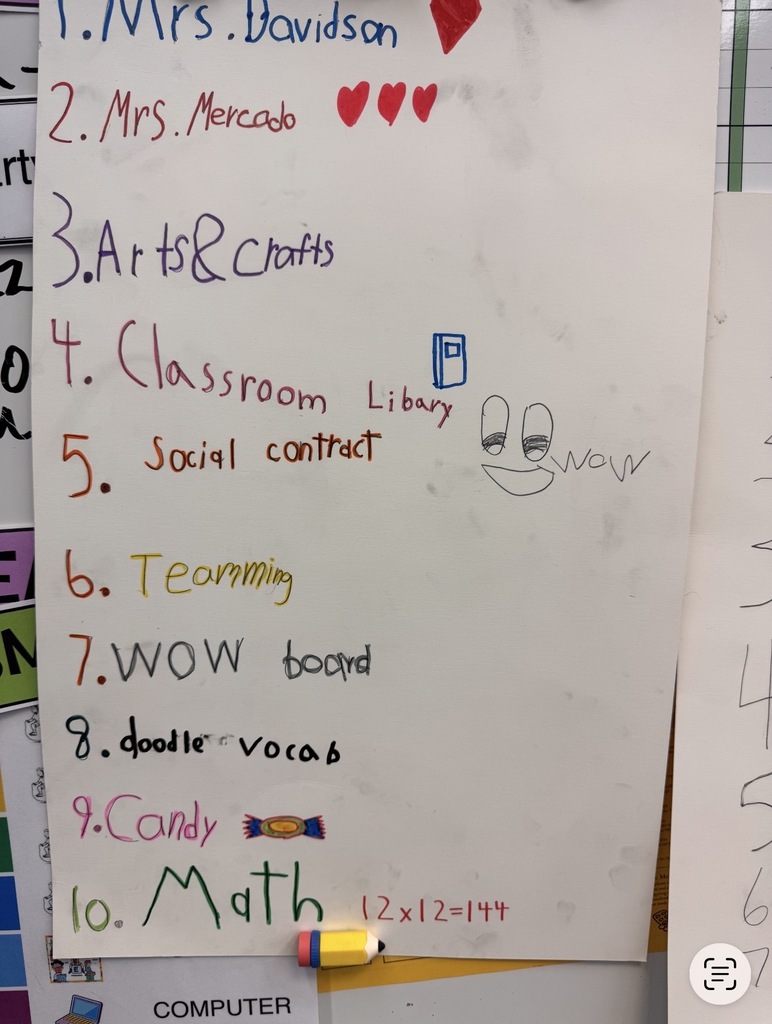 1. Mrs. Davidson
2. Mrs. Mercado
3. Arts & Crafts
4. Classroom Libary
5. Social contract
wow
6. Teamming
7. WOW board
8. doodle vocab
9. Candy
10. Math 12x12=144
COMPUTER
4
5
6
7